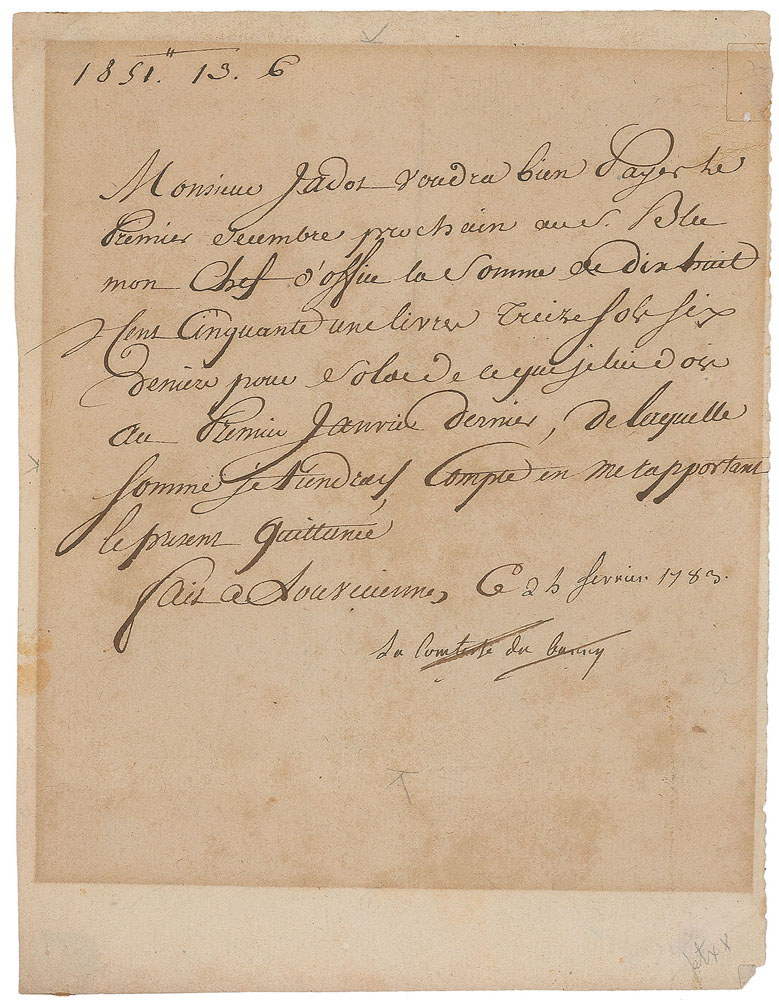 1851.ʺ 13. 6
Monsieur Jadot voudra bien Payer le
Premier decembre prochain au S. Blee
mon Chef d'office la Somme de dix huit
Cent Cinquante une livres Treize sols six
deniers pour solde de ce que je lui dois
au Premier Janvier dernier, de laquelle
somme je tiendray Compte en me rapportant
le present quittancé
fait a Louvecienne, Ce 24 fevrier 1783.
La Comtesse du barry